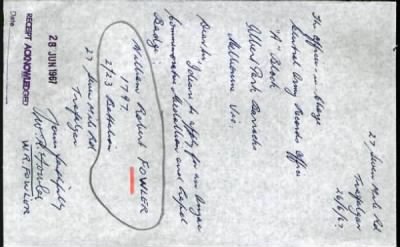 27 Seven Mile Rd
Trafalgar
26/6/67
The Officer in Charge
Central Army Records Office
"A" Block
Albert Park Barracks
Melbourne Vic.
Dear Sir, I desire to apply for an Anzac
Commemorative Medallion and Lapel
Badge.
William Robert FOWLER
1797
2/23 Battalion
27 Seven Mile Rd
Trafalgar
Yours faithfully
W.R. Fowler
W.R. FOWLER
28 JUN 1967
RECEIPT ACKNOWLEDGED
Date